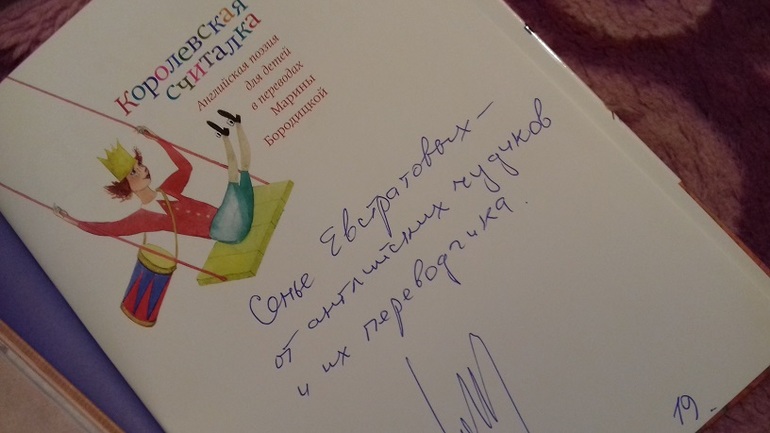 Королевская
считалка
Английская поэзия
для детей
в переводах
Марины
Бородицкой
Семье Евстратовых –
от английских чудиков
и их переводчика.
19.